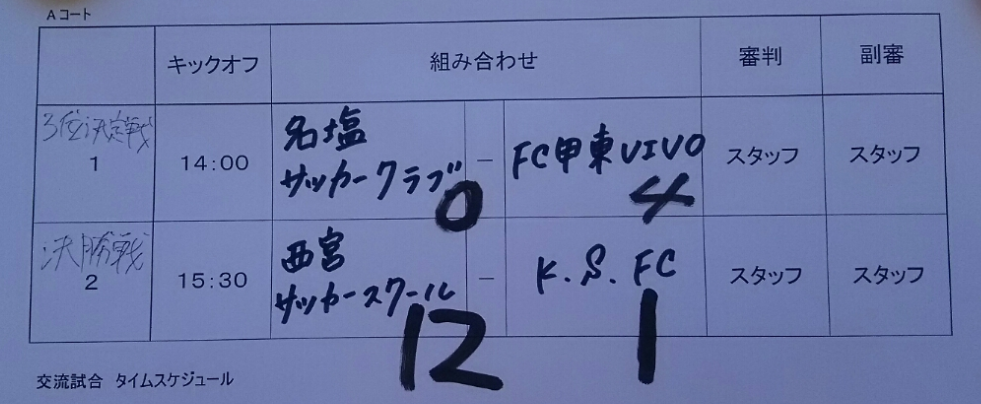 Aコート
キックオフ 組み合わせ 審判 副審
3位決定戦
1 14:00 名塩
サッカークラブ 0 － FC甲東VIVO 4 スタッフ スタッフ
決勝戦
2 15:30 西宮
サッカースクール 12 － K.S.FC 1 スタッフ スタッフ
交流試合 タイムスケジュール